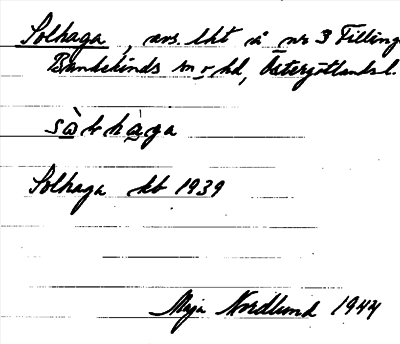 Solhaga, avs. lht å nr 3 Tilling
Bankekinds sn o hd, Östergötlands l.
sòlhàga
Solhaga kb 1939
Maja Nordlund 1944